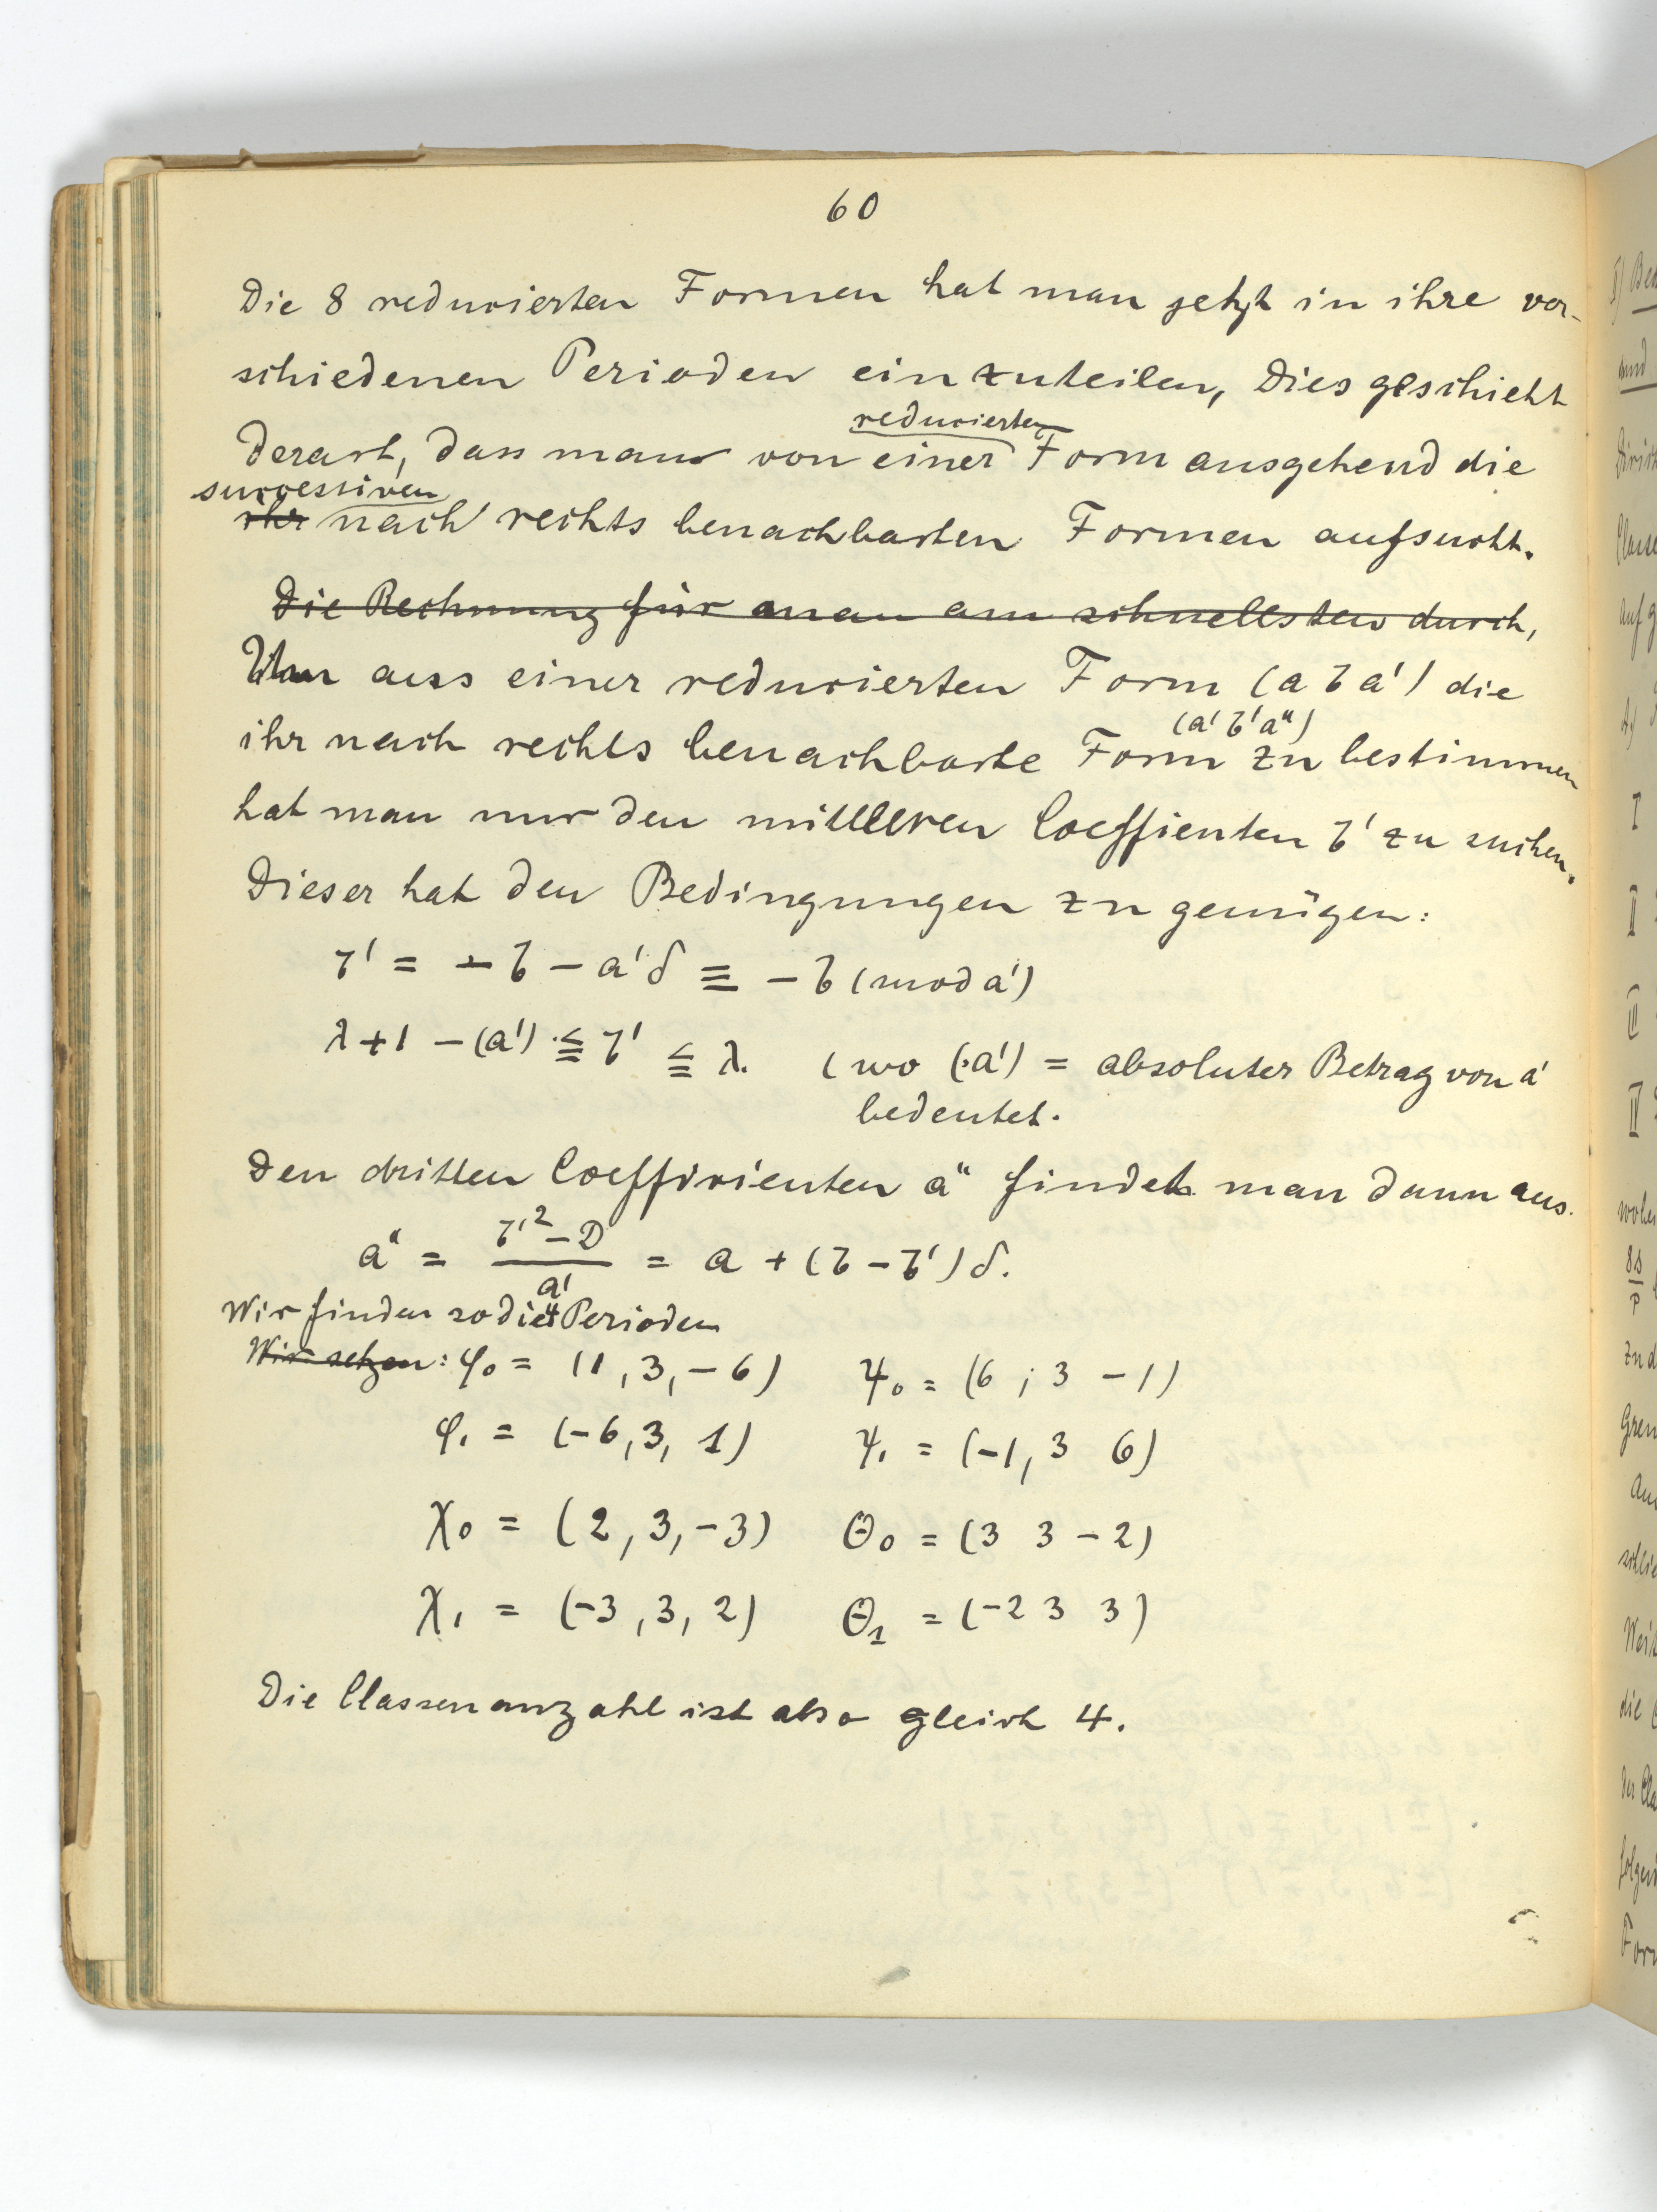 60
Die 8 reducierten Formen hat man jetzt in ihre ver-
schiedenen Perioden einzuteilen, Dies geschieht
reducierten
derart, dass man von einer Form ausgehend die
successiven
ihr nach rechts benachbarten Formen aufsucht.
Die Rechnung für man am schnellsten durch,
Um aus einer reducierten Form (a b a') die
(a' b' a'')
ihr nach rechts benachbarte Form zu bestimmen
hat man nur den mittleren Coeffienten b' zu suchen.
Dieser hat den Bedingungen zu genügen:
b' = - b - a'δ ≡ - b (mod a')
λ + 1 - (a') ≦ b' ≦ λ. (wo (a') = absoluter Betrag von a'
bedeutet.
Den dritten Coefficienten a'' findet man dann aus.
a'' = \frac{b'^2 - D}{a'} = a + (b - b')δ.
Wir finden so die 4 Perioden
Wir setzen: φ₀ = (1, 3, -6) ψ₀ = (6 ; 3 -1)
φ₁ = (-6, 3, 1) ψ₁ = (-1, 3 6)
χ₀ = (2, 3, -3) Θ₀ = (3 3 -2)
χ₁ = (-3, 3, 2) Θ₁ = (-2 3 3)
Die Classenanzahl ist also gleich 4.